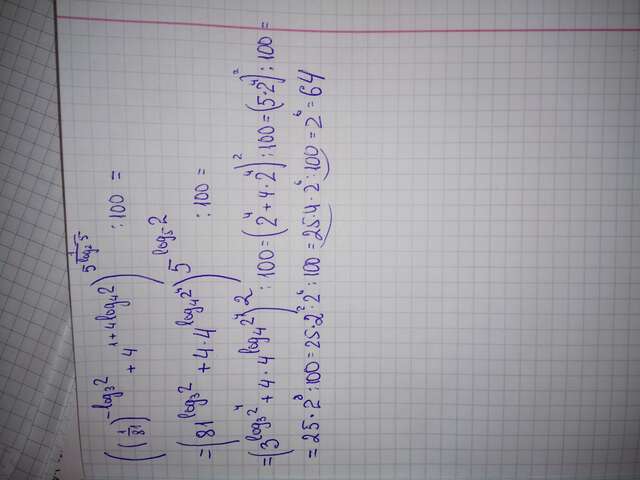 ((1/81)^(-log₃2) + 4^(1+4log₄2))^(5^(1/log₂5)) : 100 =
= (81^(log₃2) + 4·4^(log₄2⁴))^(5^(log₅2)) : 100 =
= (3^(log₃2⁴) + 4·4^(log₄2⁴))^2 : 100 = (2⁴ + 4·2⁴)² : 100 = (5·2⁴)² : 100 =
= 25·2⁸ : 100 = 25·2²·2⁶ : 100 = 25·4·2⁶ : 100 = 2⁶ = 64